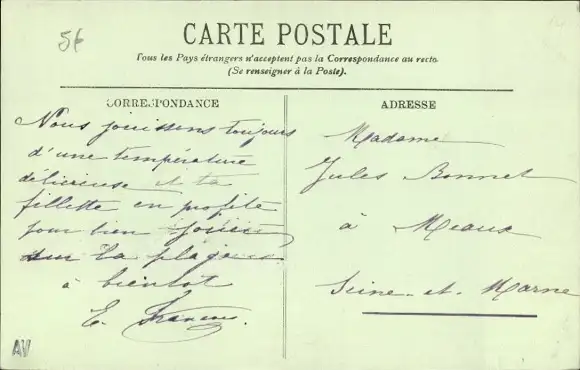 56
CARTE POSTALE
Tous les Pays étrangers n'acceptent pas la Correspondance au recto
(Se renseigner à la Poste).
CORRESPONDANCE
Nous jouissons toujours
d'une température
délicieuse et ta
fillette en profite
pour bien jouer
sur la plage
à bientôt
E.
ADRESSE
Madame
Jules Bonnet
à Meaux
Seine-et-Marne
AV